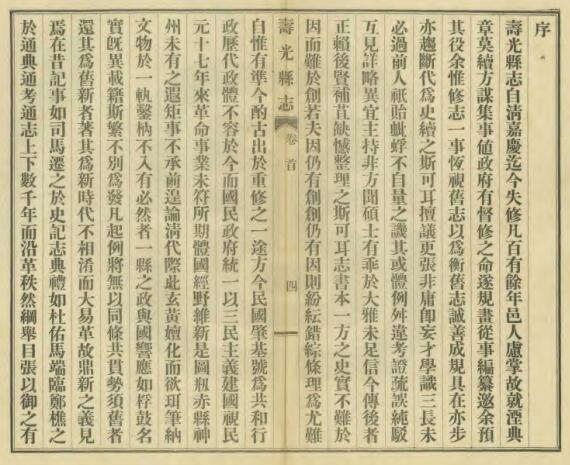 序
壽光縣志自清嘉慶迄今失修凡百有餘年邑人慮掌故就湮典
章莫續方謀集事值政府有督修之命遂規畫從事編纂邀余預
其役余惟修志一事恆視舊志以為衡舊志誠善成規具在亦步
亦趨斷代為史續之斯可耳擅議更張非庸卽妄才學識三長未
必過前人祇貽蚍蜉不自量之譏其或體例舛違考證疏誤純駁
互見詳略異宜主持非方聞碩士有乖於大雅未足信今傳後者
正賴後賢補苴缺憾整理之斯可耳志書本一方之史實不難於
因而難於創若夫因仍有創創仍有因則紛紜錯綜條理為尤難
壽光縣志
卷首
四
自惟有準今酌古出於重修之一途方今民國肇基號為共和行
政歷代政體不容於今而國民政府統一以三民主義建國視民
元十七年來革命事業未符所期體國經野維新是圖瓶赤縣神
州未有之遐矩事不承前遑論清代際此玄黃嬗化而欲珥筆納
文物於一軌鑿枘不入有必然者一縣之政與國響應如桴鼓名
實旣異載籍斯繁不別為發凡起例將無以同條共貫勢須舊者
還其為舊新者著其為新時代不相淆而大易革故鼎新之義見
焉在昔記事如司馬遷之於史記志典禮如杜佑馬端臨鄭樵之
於通典通考通志上下數千年而沿革秩然綱舉目張以御之有